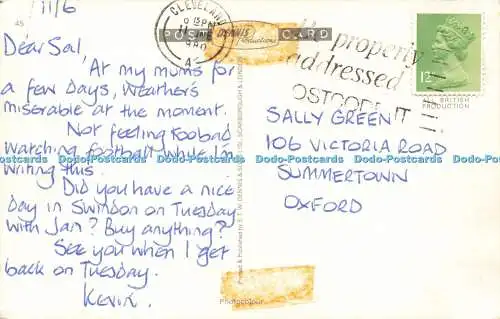 11/6
45
Dear Sal,
At my mums for
a few days, weather's
miserable at the moment.
Not feeling too bad
watching football while I'm
writing this.
Did you have a nice
day in Swindon on Tuesday
with Jan? Buy anything?
See you when I get
back on Tuesday.
Kevin.
CLEVELAND
POST CARD
DENNIS
Productions
properly
addressed
POSTCODE IT
BRITISH
PRODUCTION
SALLY GREEN
106 VICTORIA ROAD
SUMMERTOWN
OXFORD
Photocolour
Dodo-Postcards Dodo-Postcards Dodo-Postcards Dodo-Postcards Dodo-Postcards Dodo-Postcards